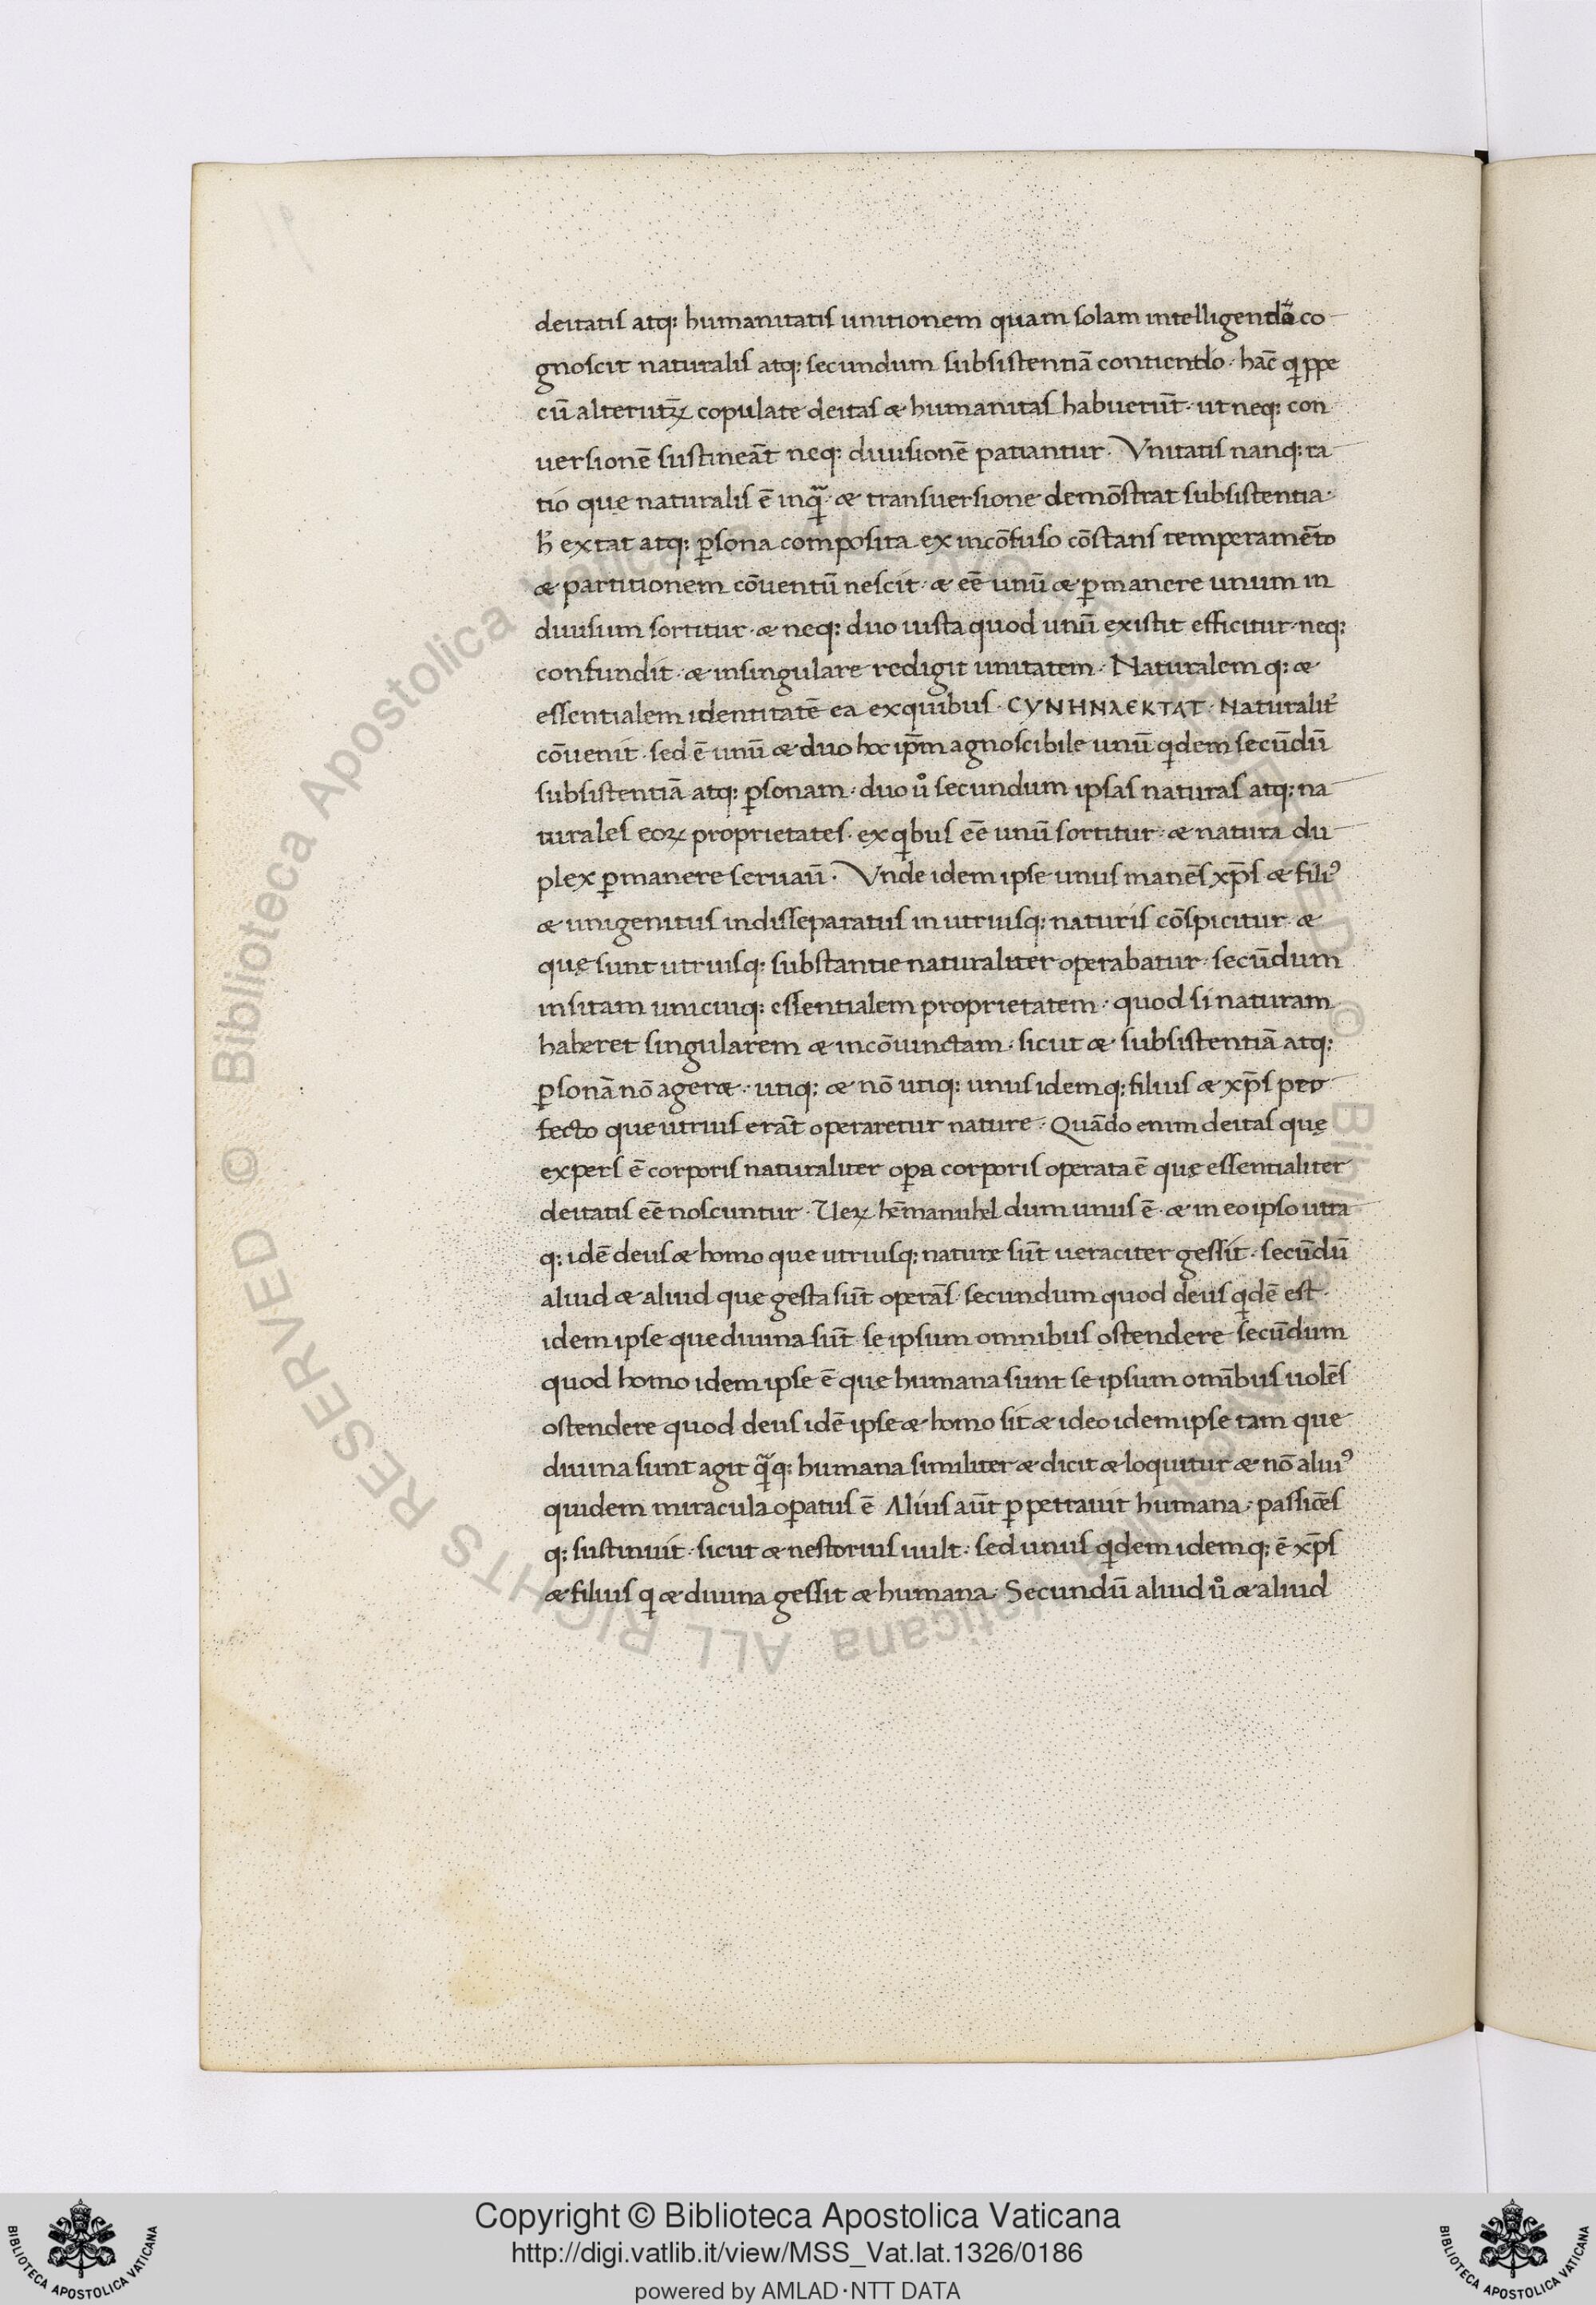 deitatis atq: humanitatis unitionem quam solam intelligenda co
gnoscit naturalis atq: secundum subsistentiā contiendo · hāc q̇ppe
cū alterutꝝ copulate deitas & humanitas habuerūt · ut neq: con
uersionē sustineāt neq: diuisionē patiantur · Vnitatis nanq: ra
tio que naturalis ē inqᷓ · & transuersione demōstrat subsistentia ·
h̄ extat atq: ꝑsona composita ex incōfuso cōstans temperamēto
& partitionem cōuentū nescit · & eē unū & ꝑmanere unum in
diuisum sortitur · & neq: duo iusta quod unū existit efficitur · neq:
confundit · & insingulare redigit unitatem · Naturalem q: &
essentialem identitatē ea exquibus · CΥΝΗΝΛΕΚΤΑΤ · Naturalit̾
cōuenit · sed ē unū & duo hoc ip̄m agnoscibile unū q̇dem secūdū
subsistentiā atq: ꝑsonam · duo ů secundum ipsas naturas atq: na
turales eoꝝ proprietates · ex q̇bus eē unū sortitur · & natura du
plex ꝑmanere seruaū · Vnde idem ipse unus manēs xp̄s & filiꝰ
& unigenitus indisseparatus in utriusq: naturis cōspicitur · &
quę sunt utriusq: substantie naturaliter operabatur · secūdum
insitam unicuiq: essentialem proprietatem · quod si naturam
haberet singularem & incōuinctam · sicut & subsistentiā atq:
ꝑsonā nō ager& · utiq: & nō utiq: unus idemq: filius & xp̄s pro
fecto que utrius erāt operaretur nature · Quādo enim deitas quę
expers ē corporis naturaliter oꝑa corporis operata ē quę essentialiter
deitatis eē noscuntur · Ueꝝ hēmanuhel dum unus ē · & in eo ipso utra
q: idē deus & homo que utriusq: nature sūt ueraciter gessit · secūdū
aliud & aliud quę gesta sūt operās · secundum quod deus q̇dē est ·
idem ipse que diuina sūt se ipsum omnibus ostendere secūdum
quod homo idem ipse ē quę humana sunt se ipsum omībus uolēs
ostendere quod deus idē ipse & homo sit & ideo idem ipse tam que
diuina sunt agit qᷓq: humana similiter & dicit & loquitur & nō aliuꝰ
quidem miracula oꝑatus ē Alius aūt ꝑpettauit humana · passiōēs
q: sustinuit · sicut & nestorius uult · sed unus q̇dem idemq: ē xp̄s
& filius q̇ & diuina gessit & humana · Secundū aliud ů & aliud
Copyright © Biblioteca Apostolica Vaticana
http://digi.vatlib.it/view/MSS_Vat.lat.1326/0186
powered by AMLAD·NTT DATA